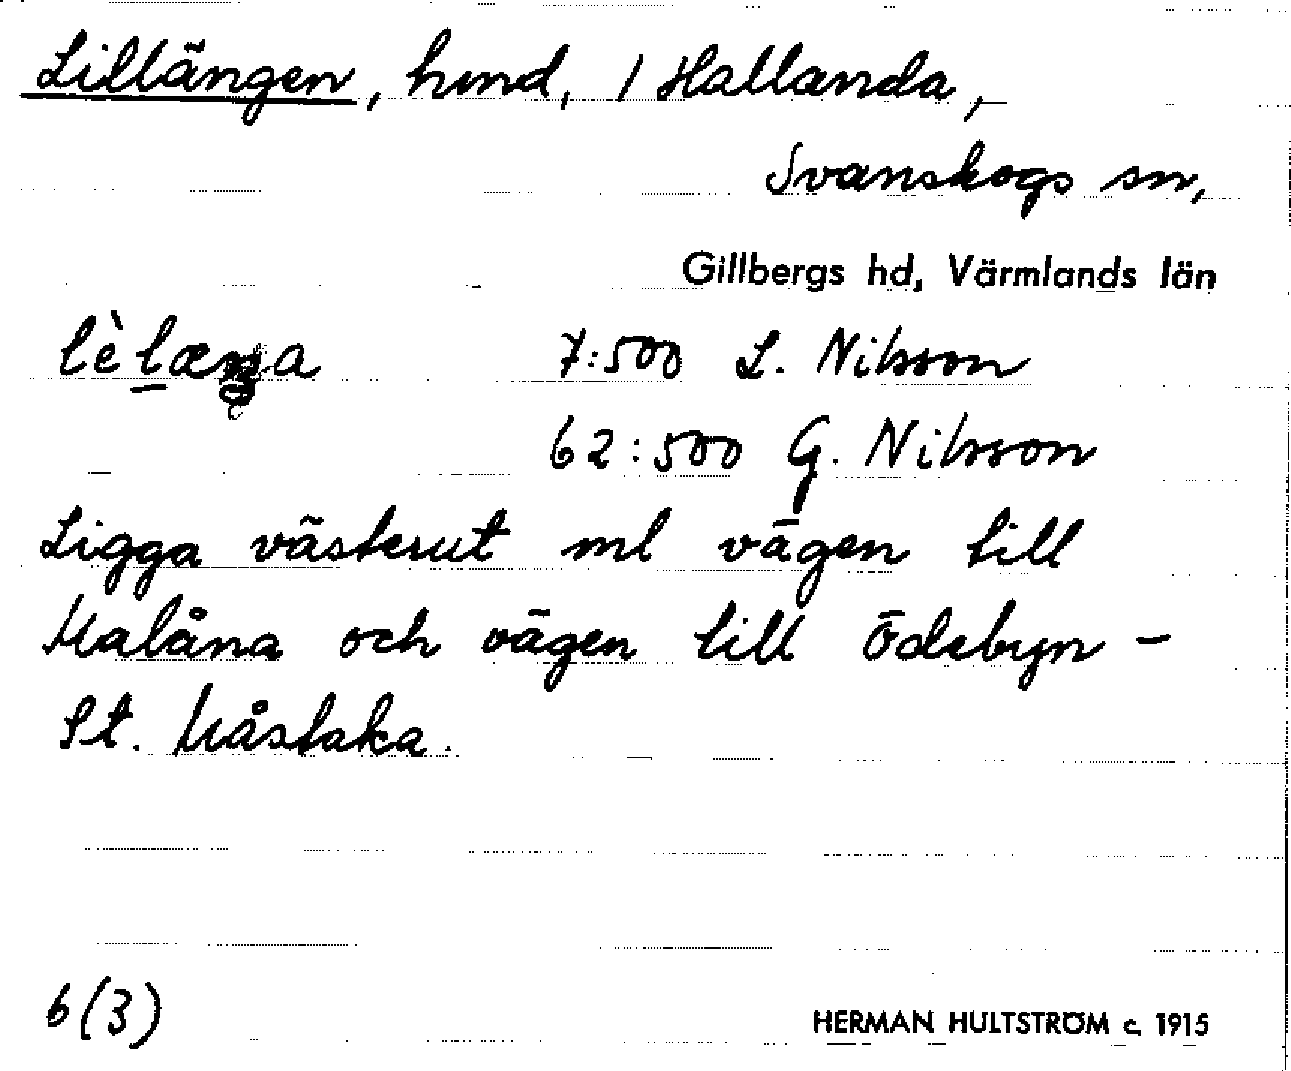 Lillängen, hmd, / Hallanda,
Svanskogs sn,
Gillbergs hd, Värmlands län
lèlæŋa 7:500 L. Nilsson
62:500 G. Nilsson
Ligga västerut ml vägen till
Malåna och vägen till Ödebyn -
St. Måstaka.
6(3)
HERMAN HULTSTRÖM c. 1915